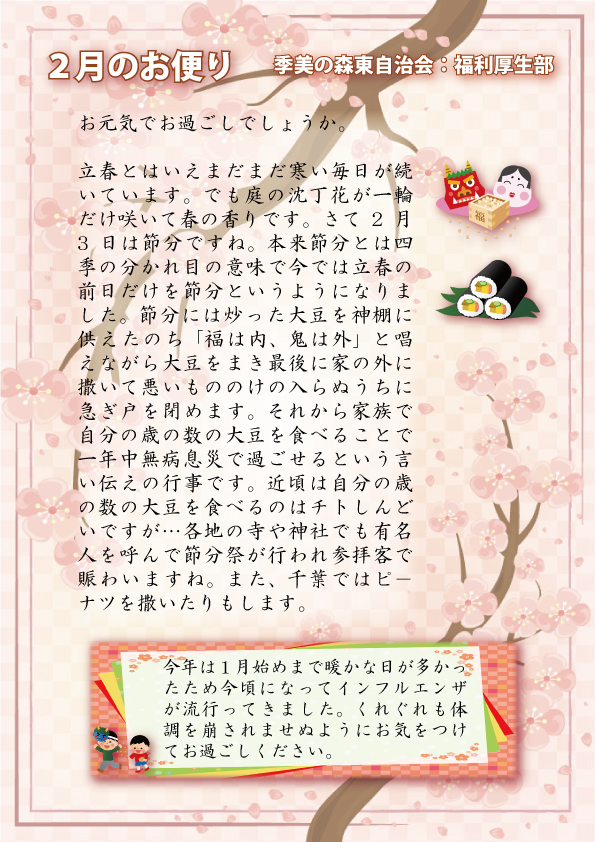 ２月のお便り
季美の森東自治会：福利厚生部
お元気でお過ごしでしょうか。
立春とはいえまだまだ寒い毎日が続
いています。でも庭の沈丁花が一輪
だけ咲いて春の香りです。さて 2 月
3 日は節分ですね。本来節分とは四
季の分かれ目の意味で今では立春の
前日だけを節分というようになりま
した。節分には炒った大豆を神棚に
供えたのち「福は内、鬼は外」と唱
えながら大豆をまき最後に家の外に
撒いて悪いもののけの入らぬうちに
急ぎ戸を閉めます。それから家族で
自分の歳の数の大豆を食べることで
一年中無病息災で過ごせるという言
い伝えの行事です。近頃は自分の歳
の数の大豆を食べるのはチトしんど
いですが…各地の寺や神社でも有名
人を呼んで節分祭が行われ参拝客で
賑わいますね。また、千葉ではピー
ナツを撒いたりもします。
福
今年は１月始めまで暖かな日が多かっ
たため今頃になってインフルエンザ
が流行ってきました。くれぐれも体
調を崩されませぬようにお気をつけ
てお過ごしください。